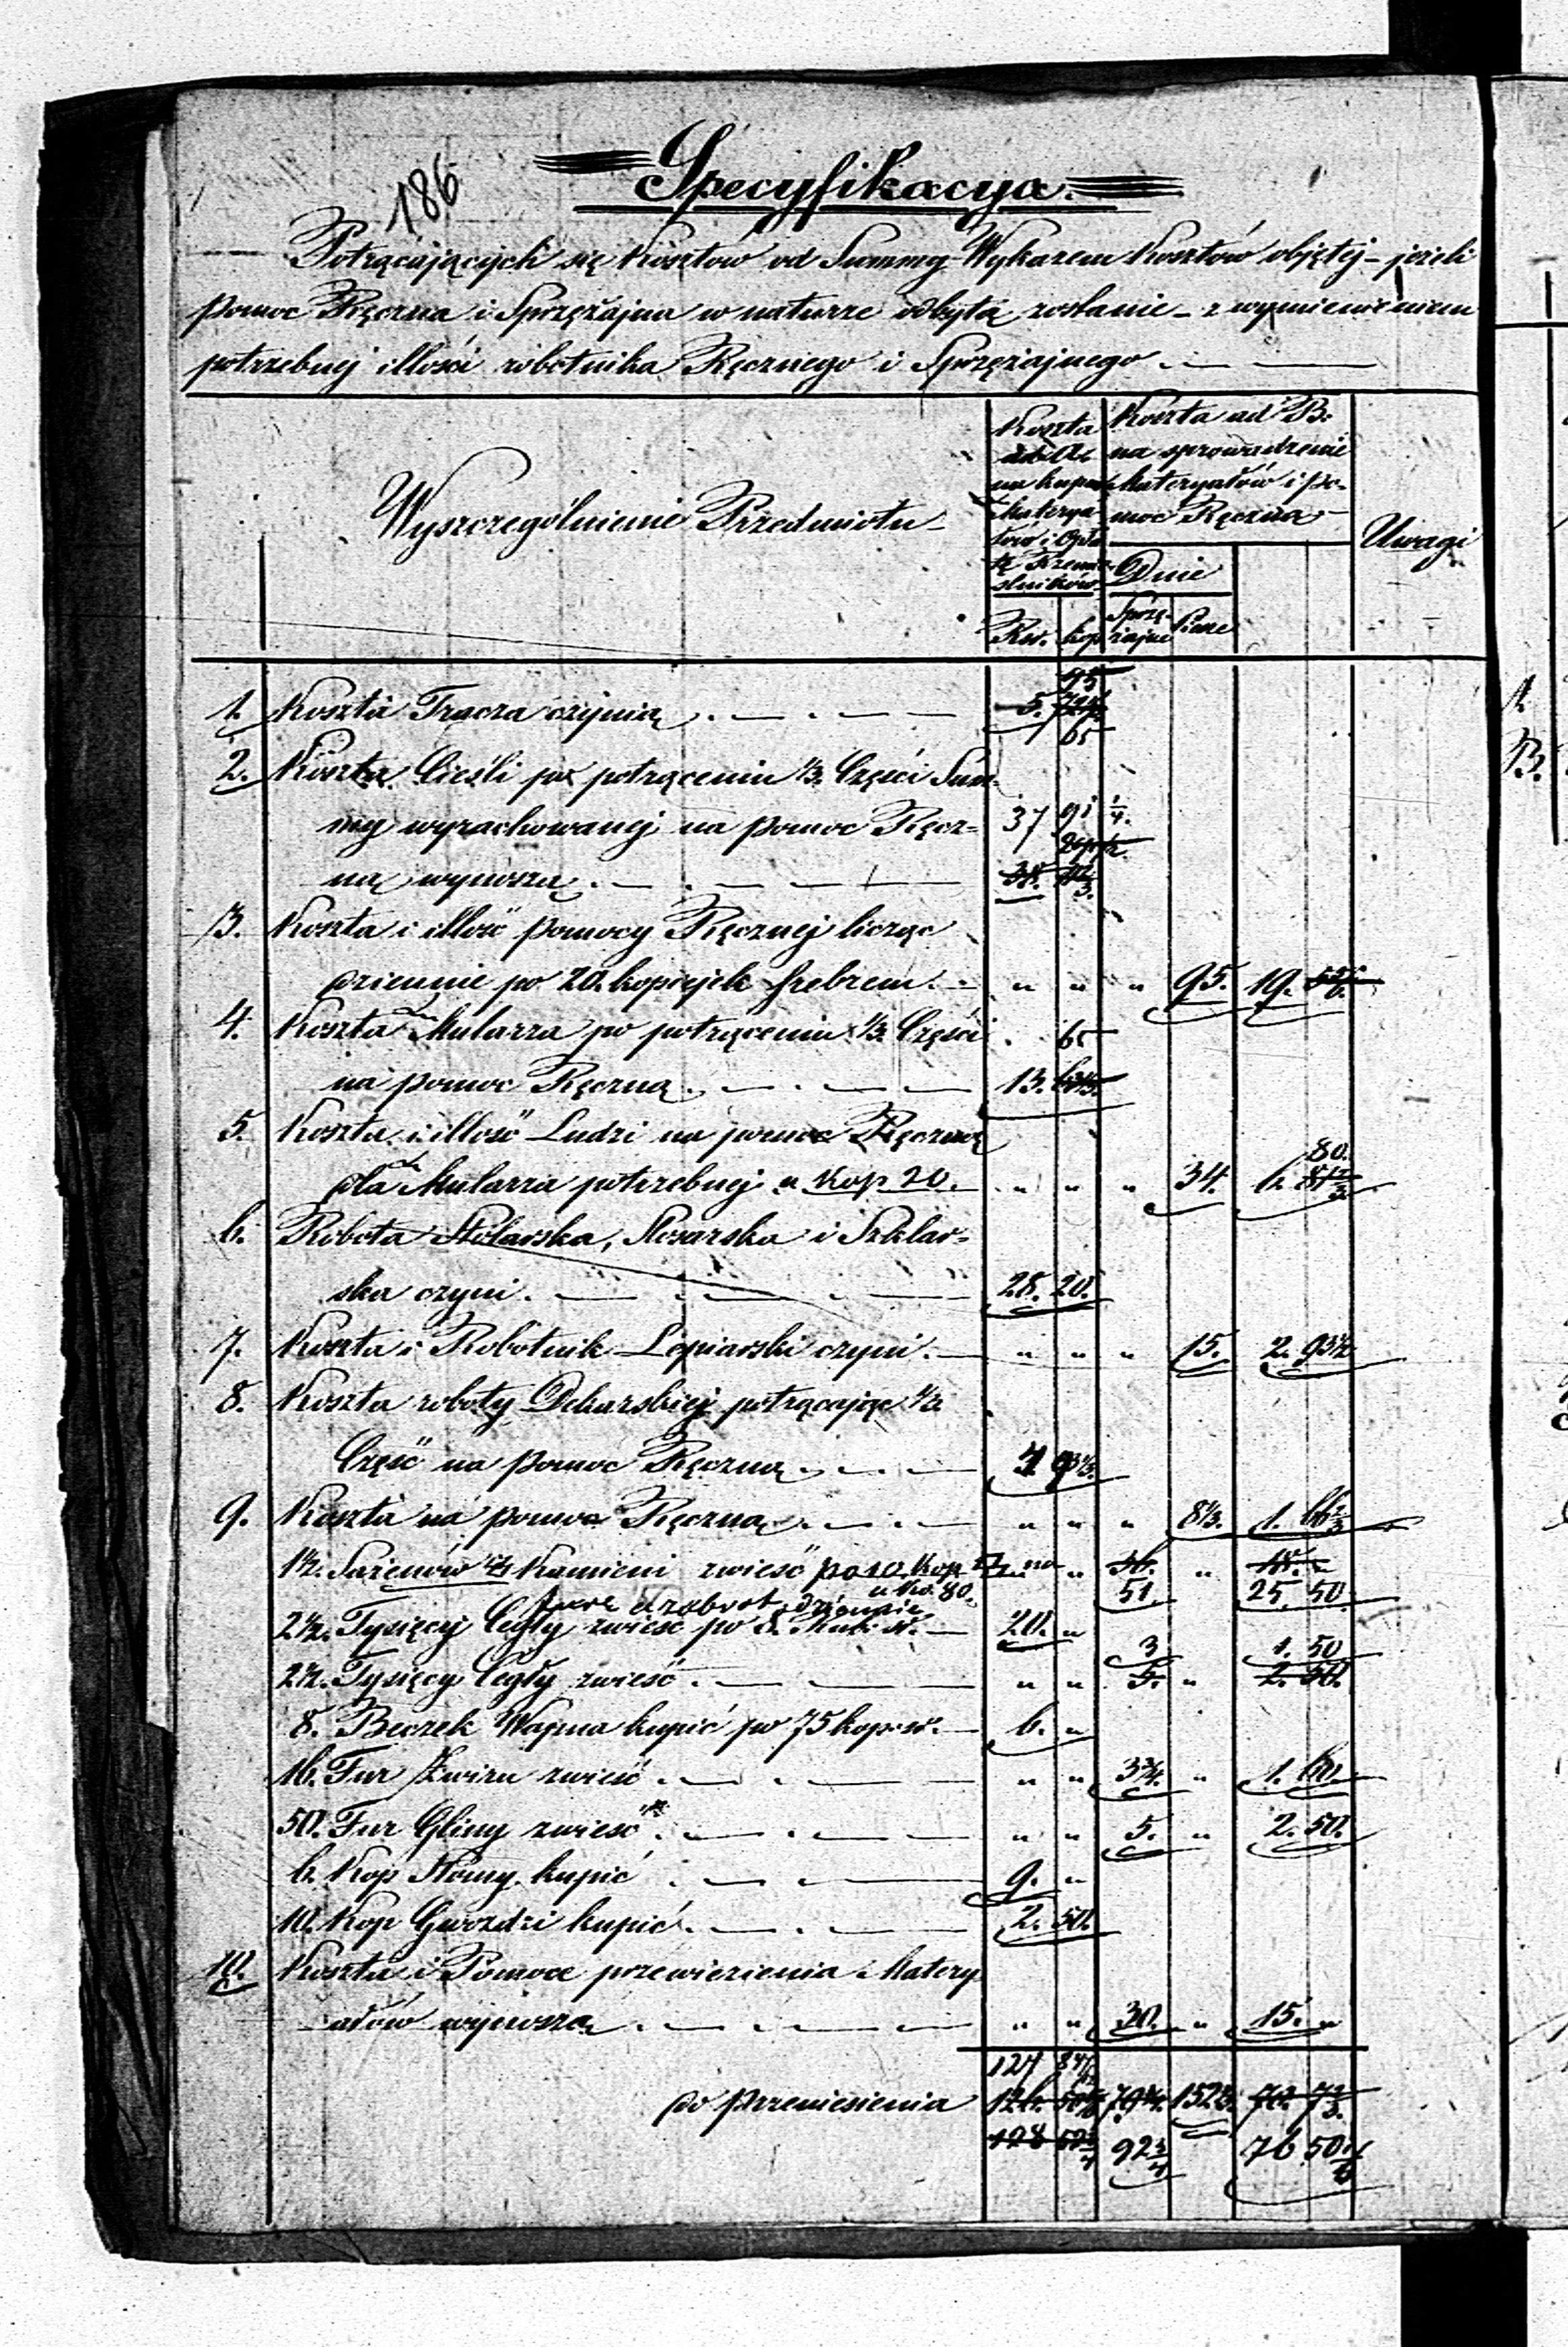 186
Specyfikacya
Potrącających się Kosztów od Summy Wykazem Kosztów objętej – jeżeli
pomoc Ręczna i Sprzężajna w naturze odbytą zostanie – z wymienieniem
potrzebnej illości robotnika Ręcznego i Sprzężajnego
Wyszczególnienie Przedmiotu
Koszta
ad A.
na kupno
Materya
łów i Opła
tę Rzemie
slników
Rsr. kop
Koszta ad B.
na sprowadzenie
Materyałów i po-
moc Ręczna
Dnie
Sprzę-
żajne Piesze
Uwagi
1. Koszta Tracza czynią 5.
65
2. Koszta Cieśli po potrąceniu 1/3. Części Sum-
my wyrachowanej na pomoc Ręcz= 37 91 1/4.
ną wynoszą 38.
3. Koszta i illość pomocy Ręcznej licząc
dziennie po 20. kopiejek srebrem. „ „ „ 95. 19.
4. Koszta Mularza po potrąceniu 1/3 Części 65
na pomoc Ręczną 13.
5. Koszta i illość Ludzi na pomoc Ręczną
80.
dla Mularza potrzebnej a Kop 20. „ „ „ 34. 6.
6. Robota Stolarska, Slosarska i Szklar-
ska czyni. 28. 20.
7. Koszta i Robotnik Lepiarski czyni. „ „ „ 15. 2. 93 1/2
8. Koszta roboty Dekarskiej potrącając 1/2
Część na pomoc Ręczną
9. Koszta na pomoc Ręczną „ „ „ 8 1/3. 1. 66 2/3
1 1/2. Sażenów Kamieni zwieść „ „ 18.
a Ko. 80. 51. 25. 50.
2 1/2. Tysięcy Cegły zwieść po 8. Rub. sr. 20. „
3 1. 50
2 1/2. Tysięcy Cegły zwieść „ „ 5. „ 2. 50.
8. Beczek Wapna kupić po 75 kop. sr. 6. „
16. Fur Żwiru zwieść „ „ 3 3/4. „ 1. 60.
50. Fur Gliny zwieść „ „ 5. „ 2. 50.
6. Kop Słomy kupić 9. „
10. Kop Gwozdzi kupić 2. 50.
10. Koszta i Pomoce przewiezienia Matery
ałów wynoszą „ „ 30. „ 15. „
127
do przeniesienia 126. 79 3/4. 152 1/3. 70.
128 92 3/4 76 50 1/6